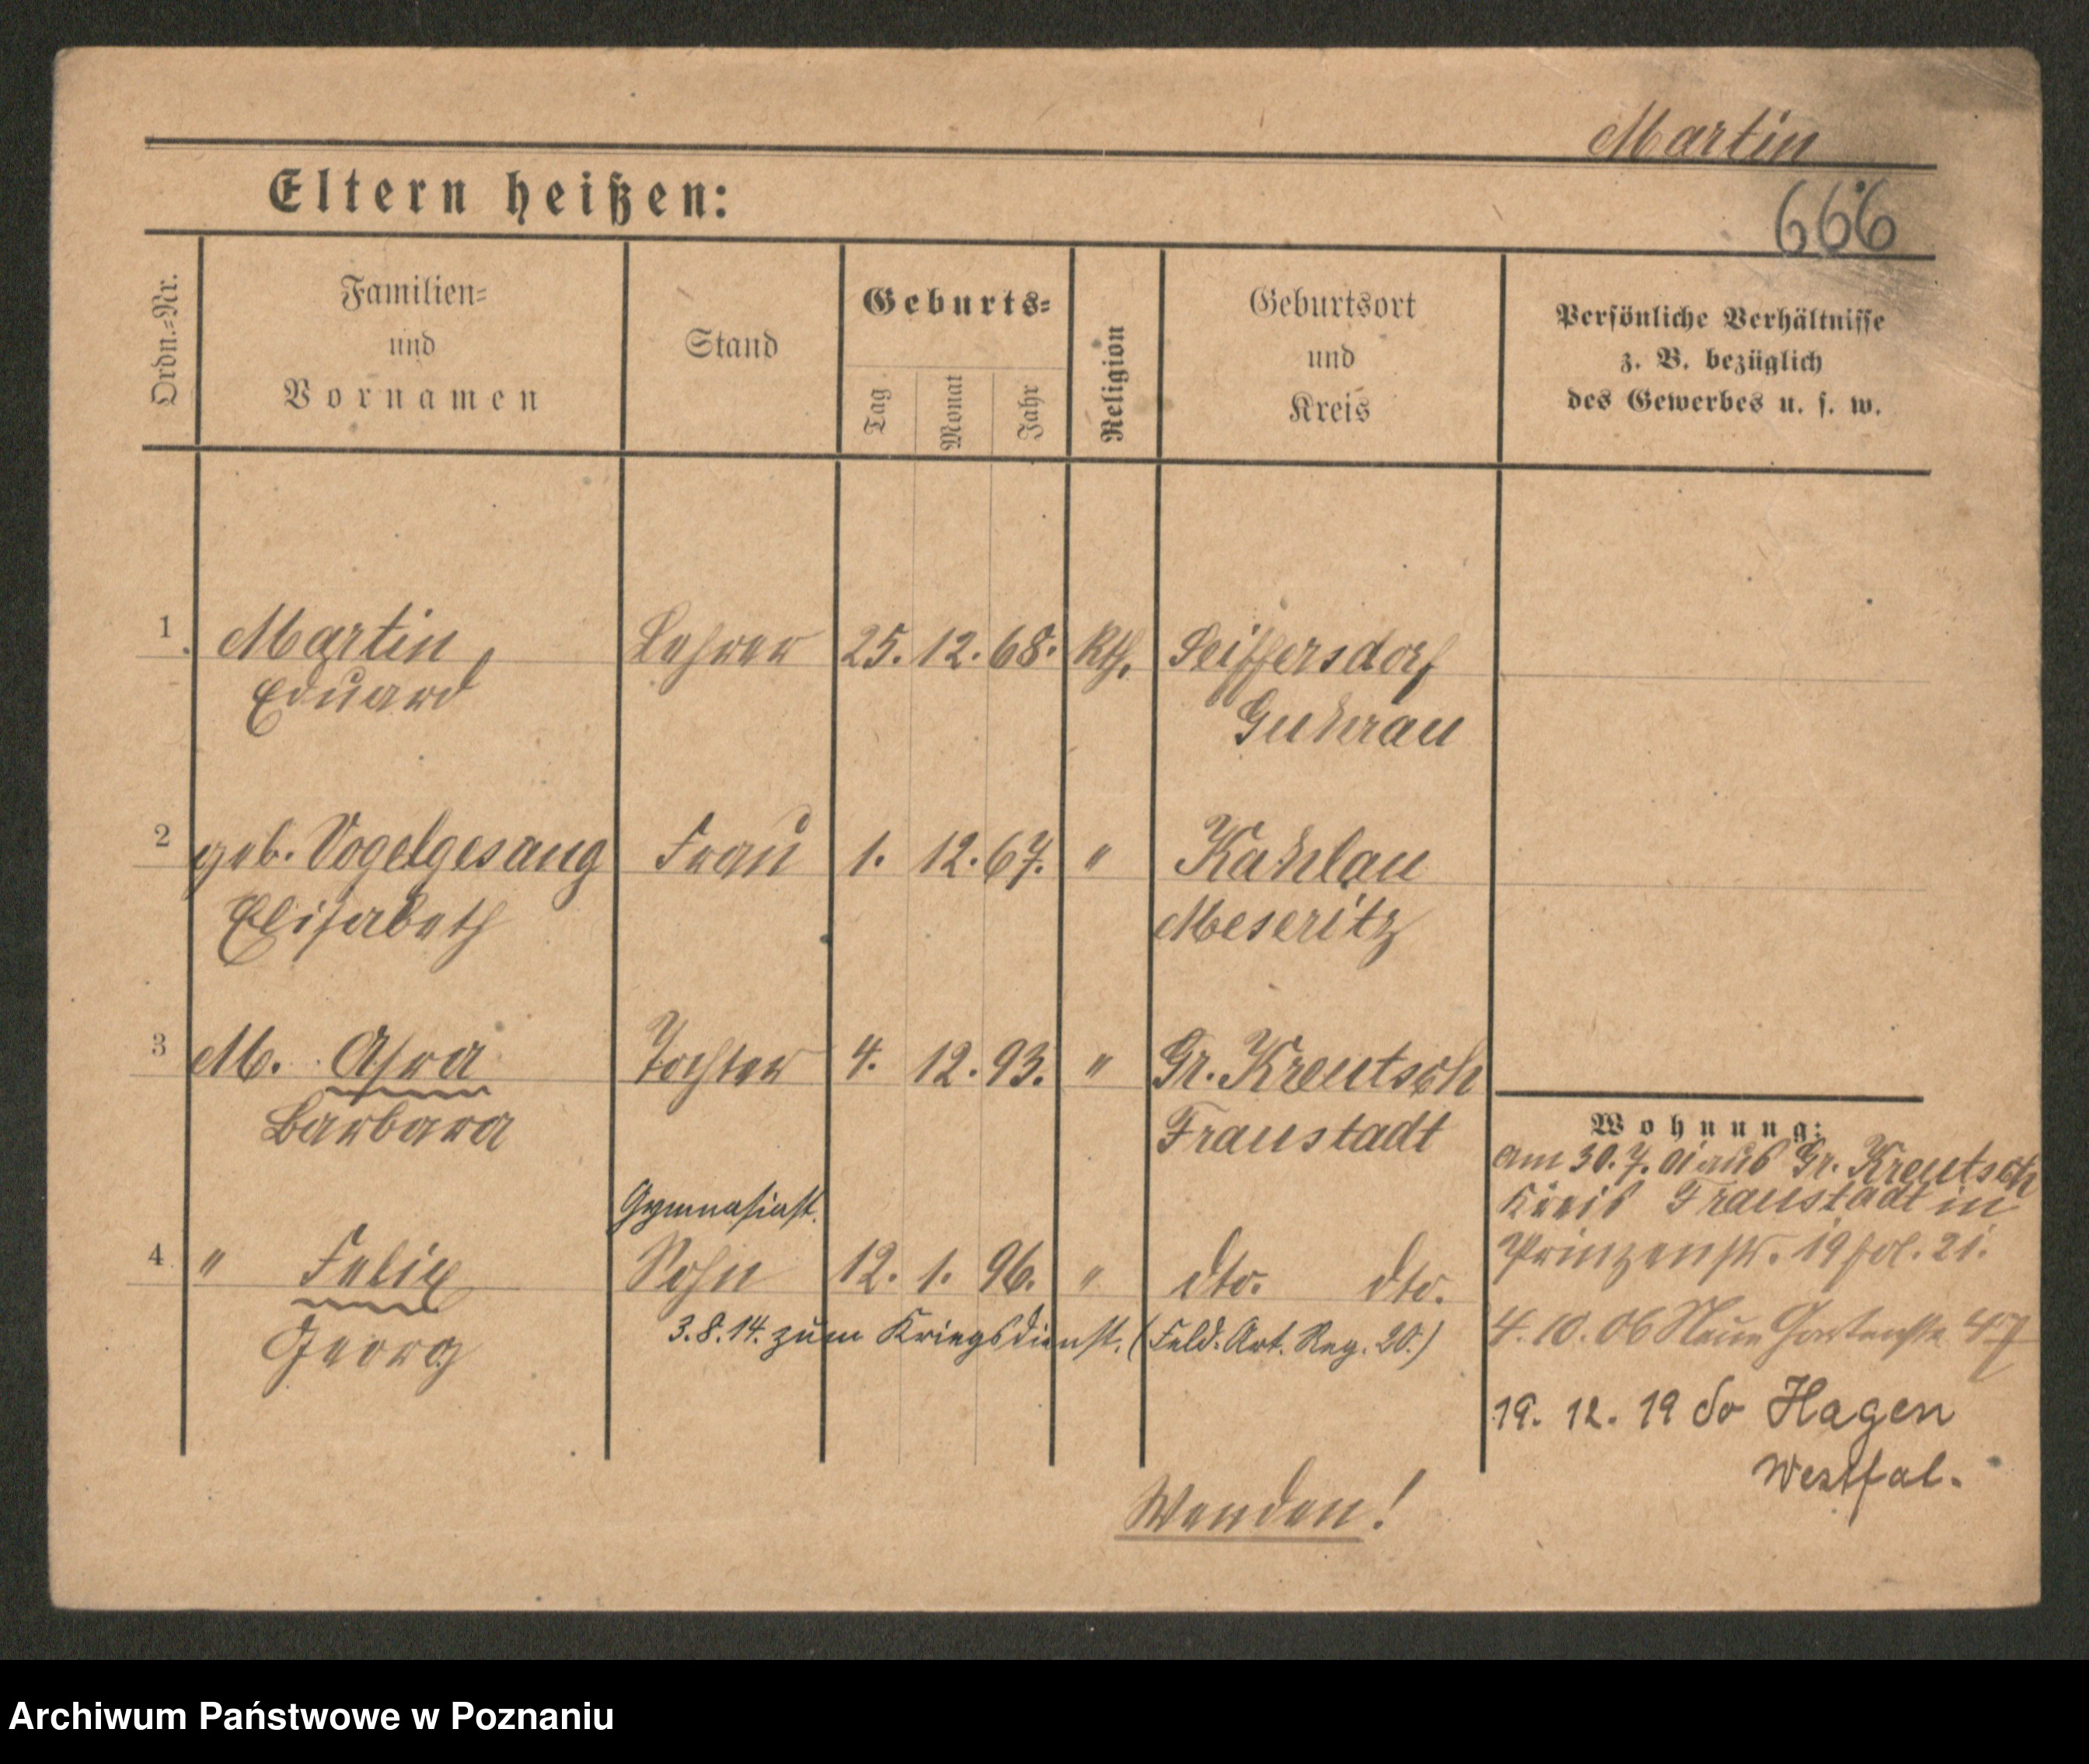 Martin
Eltern heißen:
666
Ordn.=Nr.
Familien=
und
Vornamen
Stand
Geburts=
Tag
Monat
Jahr
Religion
Geburtsort
und
Kreis
Persönliche Verhältnisse
z. B. bezüglich
des Gewerbes u. s. w.
1. Martin, Lehrer 25. 12. 68. Kth. Seiffersdorf
Eduard Guhrau
2 geb. Vogelgesang Frau 1. 12. 67. " Kahlau
Elisabeth Meseritz
3 M. Tochter 4. 12. 93. " Gr. Kreutsch
Barbara Fraustadt
Gymnasiast.
4 " Felix Sohn 12. 1. 96. " dto. dto.
Georg 3.8.14. zum Kriegsdienst. (Feld. Art. Reg. 20.)
Wohnung:
am 30. 7. 01 aus Gr. Kreutsch
Kreis Fraustadt in
Prinzenstr. 19 21.
4. 10. 06 Neue Gartenstr 47
19. 12. 19 Hagen
Westfal.
Wenden!
Archiwum Państwowe w Poznaniu